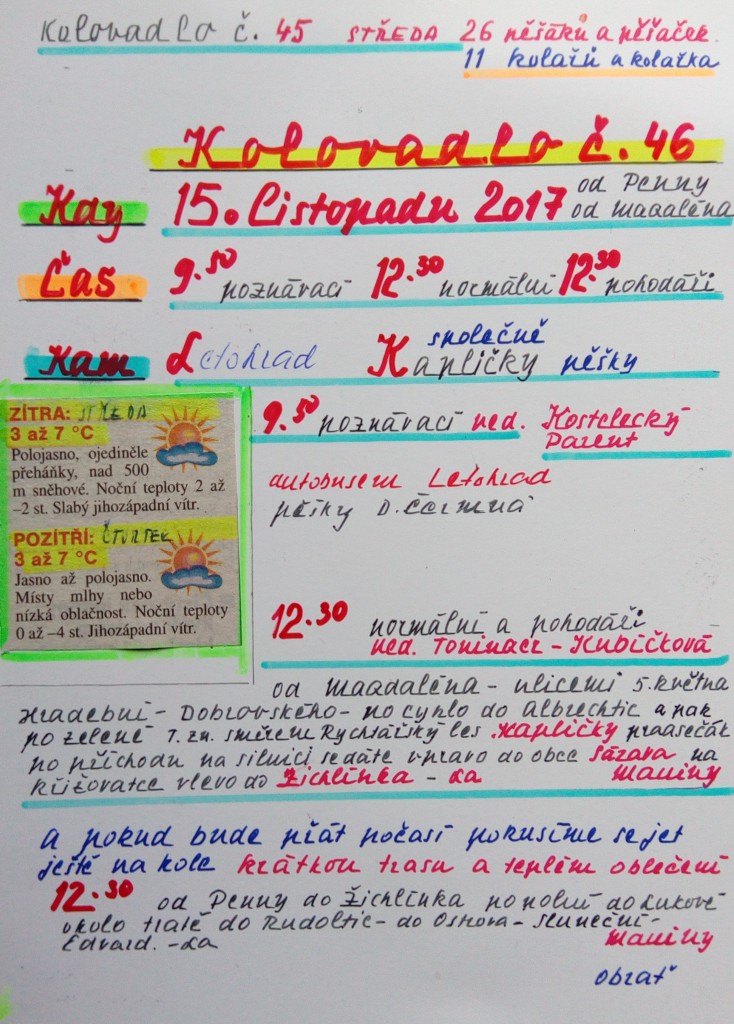 Kolovadlo č. 45 STŘEDA 26 pěšáků a pěšaček
11 kolařů a kolařka
Kolovadlo č. 46
Kdy 15. Listopadu 2017 od Penny
od Magdaléna
Čas 9.50 poznávací 12.30 normální 12.30 pohodáři
Kam Letohrad společně Kapličky pěšky
ZÍTRA: STŘEDA
3 až 7 °C
Polojasno, ojediněle
přeháňky, nad 500
m sněhové. Noční teploty 2 až
–2 st. Slabý jihozápadní vítr.
POZÍTŘÍ: ČTVRTEK
3 až 7 °C
Jasno až polojasno.
Místy mlhy nebo
nízká oblačnost. Noční teploty
0 až –4 st. Jihozápadní vítr.
9.50 poznávací ved. Kostelecký
Parent
autobusem Letohrad
pěšky D. Čermná
12.30 normální a pohodáři
ved. Tominacz - Kubíčková
od Magdaléna - ulicemi 5. května
Hradební - Dobrovského - po cyklo do Albrechtic a pak
po zelené T. zn. směrem Rychtářský les Kapličky
po příchodu na silnici se dáte vpravo do obce Sázava na
křižovatce vlevo do Žichlínka - La Mauiny
a pokud bude přát počasí pokusíme se jet
ještě na kole krátkou trasu a teplém oblečení
12.30 od Penny do Žichlínka po polní do Lukové
okolo tratě do Rudoltic - do Ostrova - sluneční -
Edvard. - La Mauiny
obrať